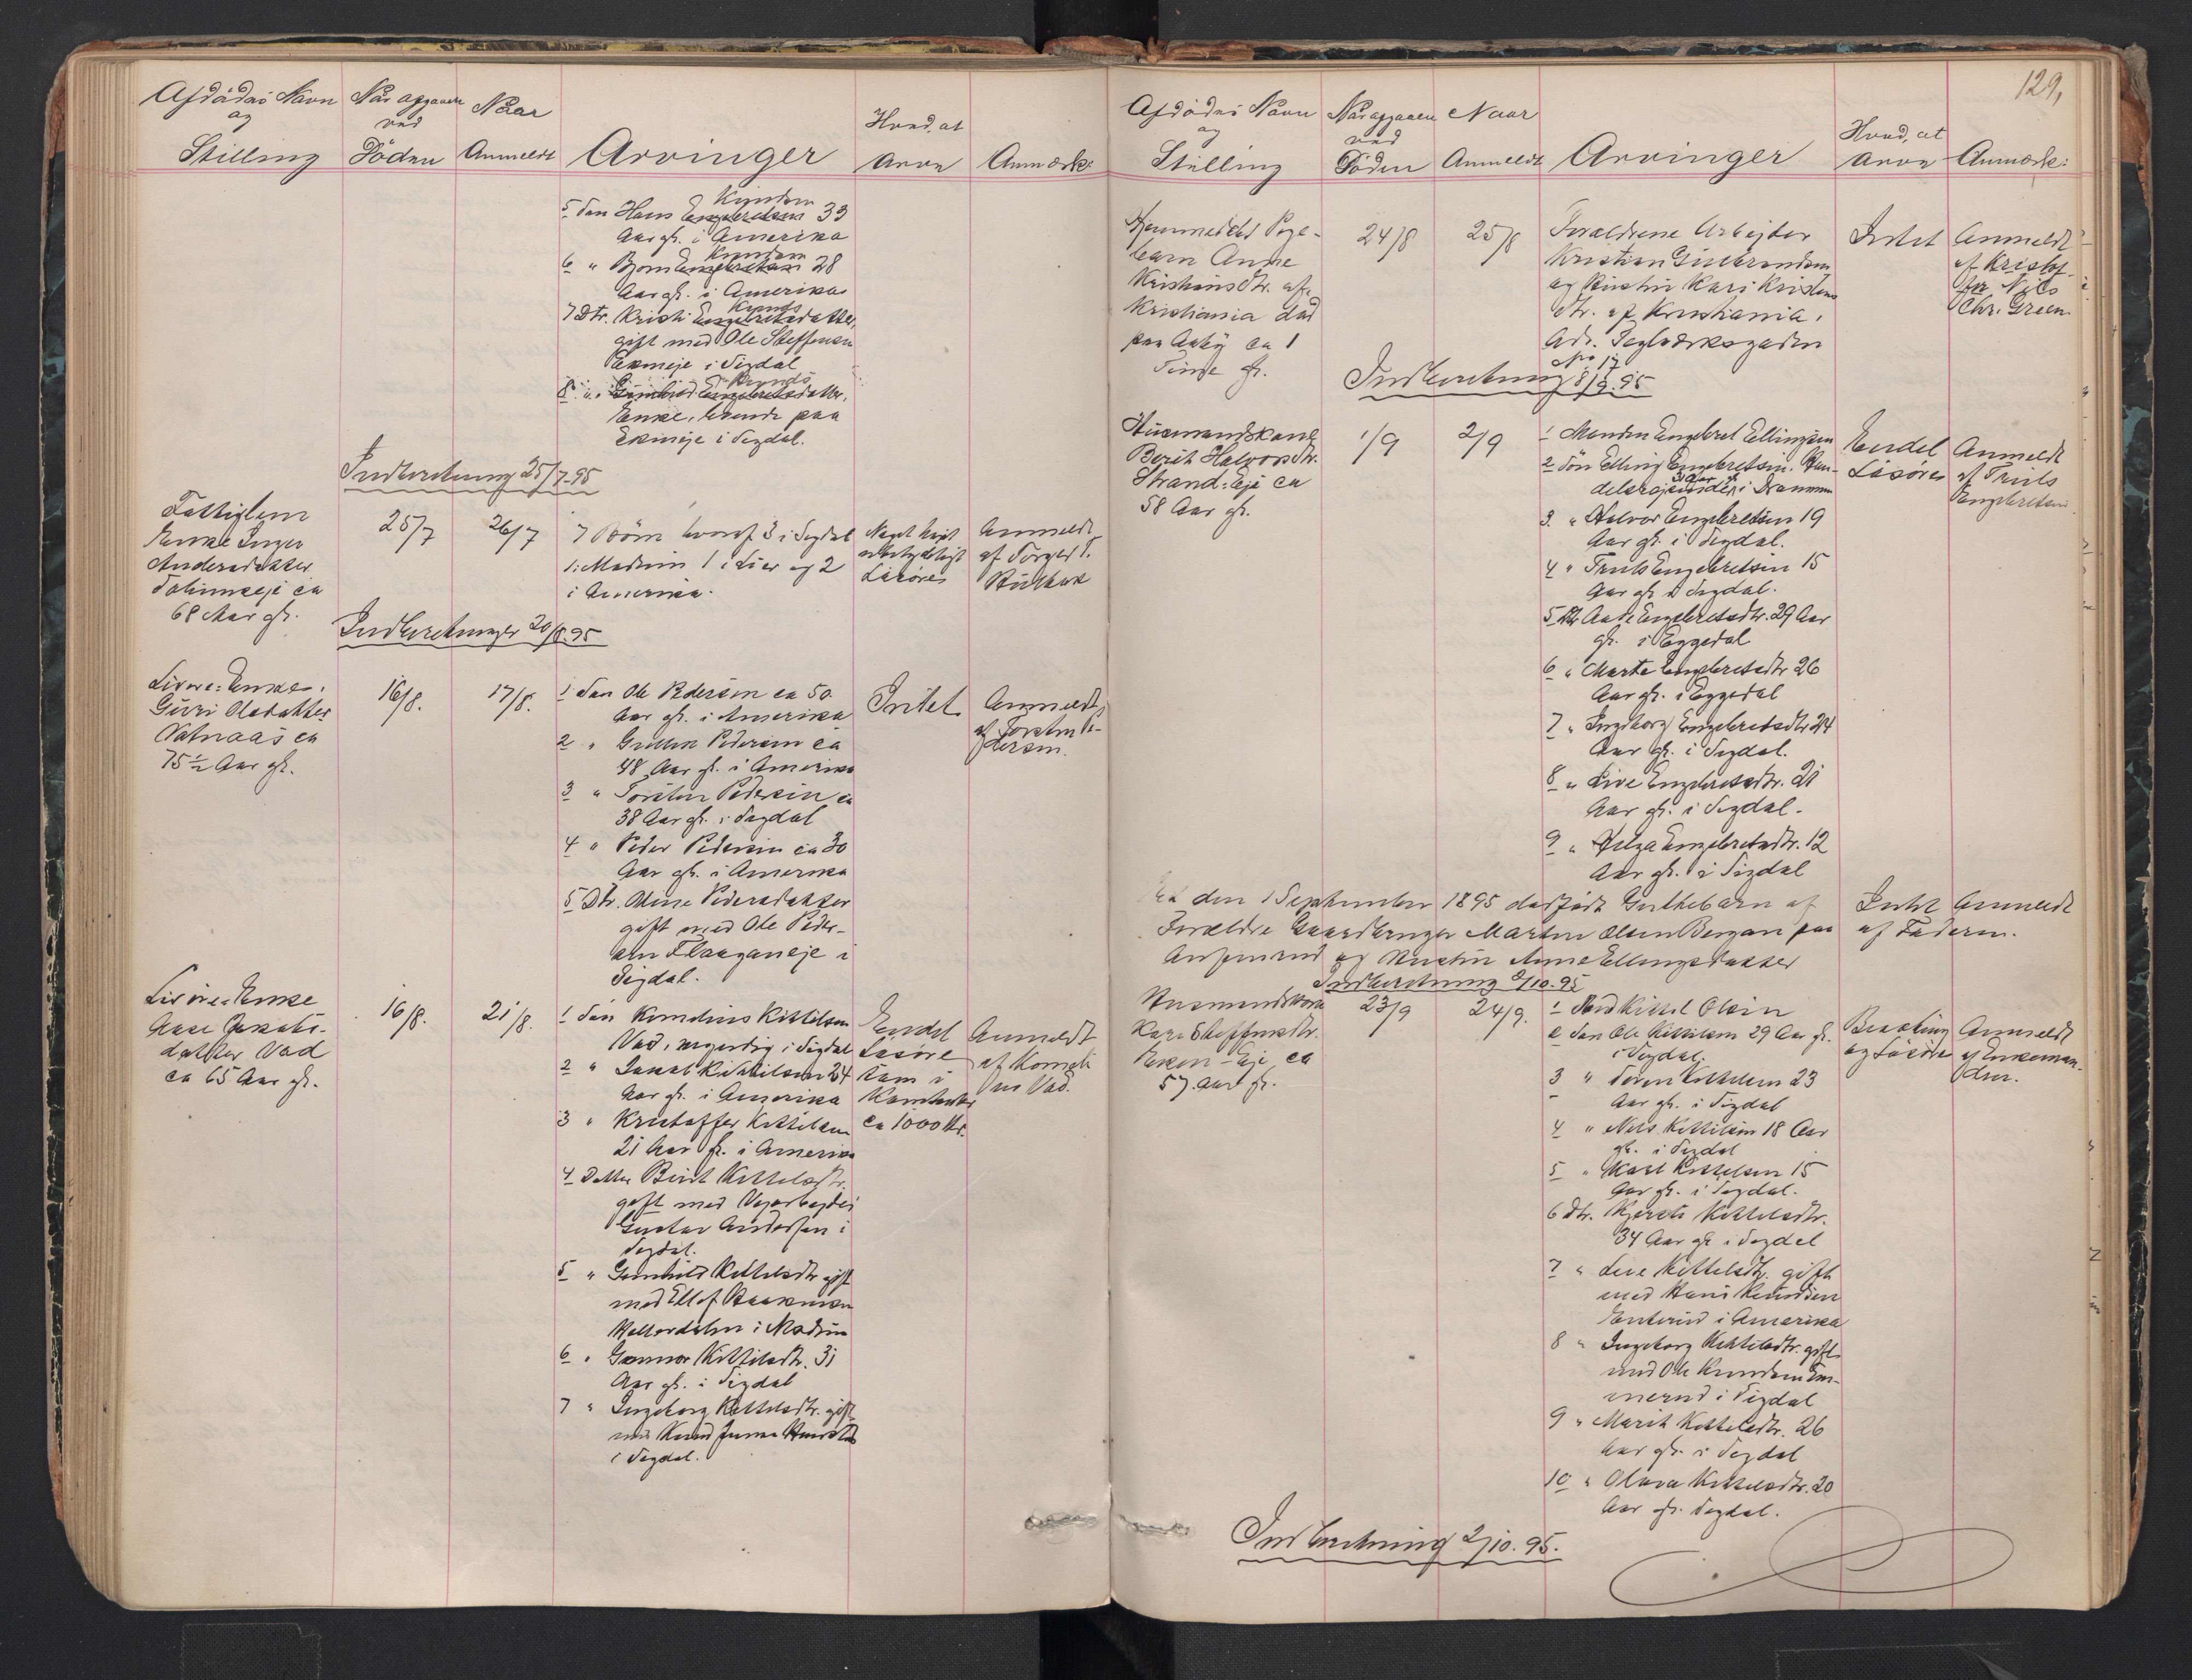 Afdødes Navn
og
Stilling
Når afgaaen
ved
Døden
Naar
Anmeldt
Arvinger
Hvad, at
arve
Anmærk:
5 Søn Hans Engebretsen Knudsen 33
Aar gl. i Amerika
6 " Bjørn Engebretsen Knudsen 28
Aar gl. i Amerika
7 Dtr. Kristi Engebretsdatter Knuds
gift med Ole Steffensen
Ekerneje i Sigdal
8 " Gunhild Engebretsdatter, Knuds
Enke, boende paa
i Sigdal.
Indberetning 25/7-95
Fattiglem
Enke Inger
Andersdatter
ca
68 Aar gl.
25/7
26/7
7 Børn hvoraf 3 i Sigdal
1 i Modum 1 i Lier og 2
i Amerika.
Noget høist
ubetydeligt
Løsøre
Anmeldt
af Torger T.
Indberetninger 20/8.95
Enke
Guri Olsdatter
Vatnaas ca
75½ Aar gl.
16/8.
17/8.
1 Søn Ole Pedersen ca 50
Aar gl. i Amerika
2 " Gullik Pedersen ca
48 Aar gl. i Amerika
3 " Torsten Pedersen ca
38 Aar gl. i Sigdal
4 " Peder Pedersen ca 30
Aar gl. i Amerika
5 Dtr. Pedersdatter
gift med Ole Peder-
sen i
Sigdal.
Intet
Anmeldt
af Torsten Pe-
dersen.
Enke
Aase Jakobs-
datter Vad
ca 65 Aar gl.
16/8.
21/8.
1 Søn Kornelius Kittilsen
Vad, myndig i Sigdal
2 " Jakob Kittilsen 24
Aar gl. i Amerika
3 " Kristoffer Kittilsen
21 Aar gl. i Amerika
4 Datter Berit Kittelsdtr.
gift med Vejarbejder
Gustav Andersen i
Sigdal.
5 " Gunhild Kittelsdtr. gift
med Ellef
i Modum
6 " Gunnor Kittilsdtr. 31
Aar gl. i Sigdal
7 " Ingeborg Kittelsdtr. gift
med Knud
i Sigdal.
Endel
Løsøre
sam i
Kontanter
ca 1000 Kr.
Anmeldt
af Korneli-
us Vad.
129,
Afdødes Navn
og
Stilling
Når afgaaen
ved
Døden
Naar
Anmeldt
Arvinger
Hvad, at
arve
Anmærk:
Hjemmedøbt Pige-
barn Anne
Kristiansdtr. af
Kristiania død
paa Aaby ca 1
Time gl.
24/8
25/8
Forældrene Arbejder
Kristian Gulbrandsen
og Hustru Kari Kristens
dtr. af Kristiania,
Adr. Teglverksgaden
No 17
Intet
Anmeldt
af Kristof-
fer Nils
Chr. Green.
Indberetning 8/9.95
Husmandskone
Berit Halvorsdtr.
Strand-Eje ca
58 Aar gl.
1/9
2/9
1 Manden Engebret Ellingsen
2 Søn Elling Engebretsen. Han-
delsrejsende 31 Aar gl. i Drammen
3. " Halvor Engebretsen 19
Aar gl. i Sigdal.
4 " Truls Engebretsen 15
Aar gl. i Sigdal.
5 Dtr. Engebretsdtr. 29 Aar
gl. i Eggedal
6 " Marte Engebretsdtr 26
Aar gl. i Eggedal
7 " Ingeborg Engebretsdtr 24
Aar gl. i Sigdal.
8 " Live Engebretsdtr. 21
Aar gl. i Sigdal.
9 " Helga Engebretsdtr. 12
Aar gl. i Sigdal
Endel
Løsøre
Anmeldt
af Truls
Engebretsen.
Et den 1 September 1895 dødfødt Guttebarn af
Forældre Gaardbruger Martin Olsen Bergan paa
og Hustru Anne Ellingsdatter
Intet
Anmeldt
af Faderen.
Indberetning 2/10.95
Husmandskone
Kari Steffensdtr.
Eje ca
57 Aar gl.
23/9
24/9.
1 Mand Kittel Olsen
2 Søn Ole Kittilsen 29 Aar gl.
i Sigdal.
3 " Søren Kittelsen 23
Aar gl. i Sigdal
4 " Nils Kittilsen 18 Aar
gl. i Sigdal
5 " Karl Kittelsen 15
Aar gl. i Sigdal.
6 Dtr. Kjersti Kittelsdtr.
34 Aar gl. i Sigdal
7 " Live Kittelsdtr. gift
med Hans Knudsen
i Amerika
8 " Ingeborg Kittelsdtr. gift
med Ole Knudsen
i Sigdal
9 " Marit Kittelsdtr. 26
Aar gl. i Sigdal
10 " Olava Kittelsdtr. 20
Aar gl. Sigdal.
Besætning
og Løsøre
Anmeldt
af Enkeman-
den.
Indberetning 2/10.95.